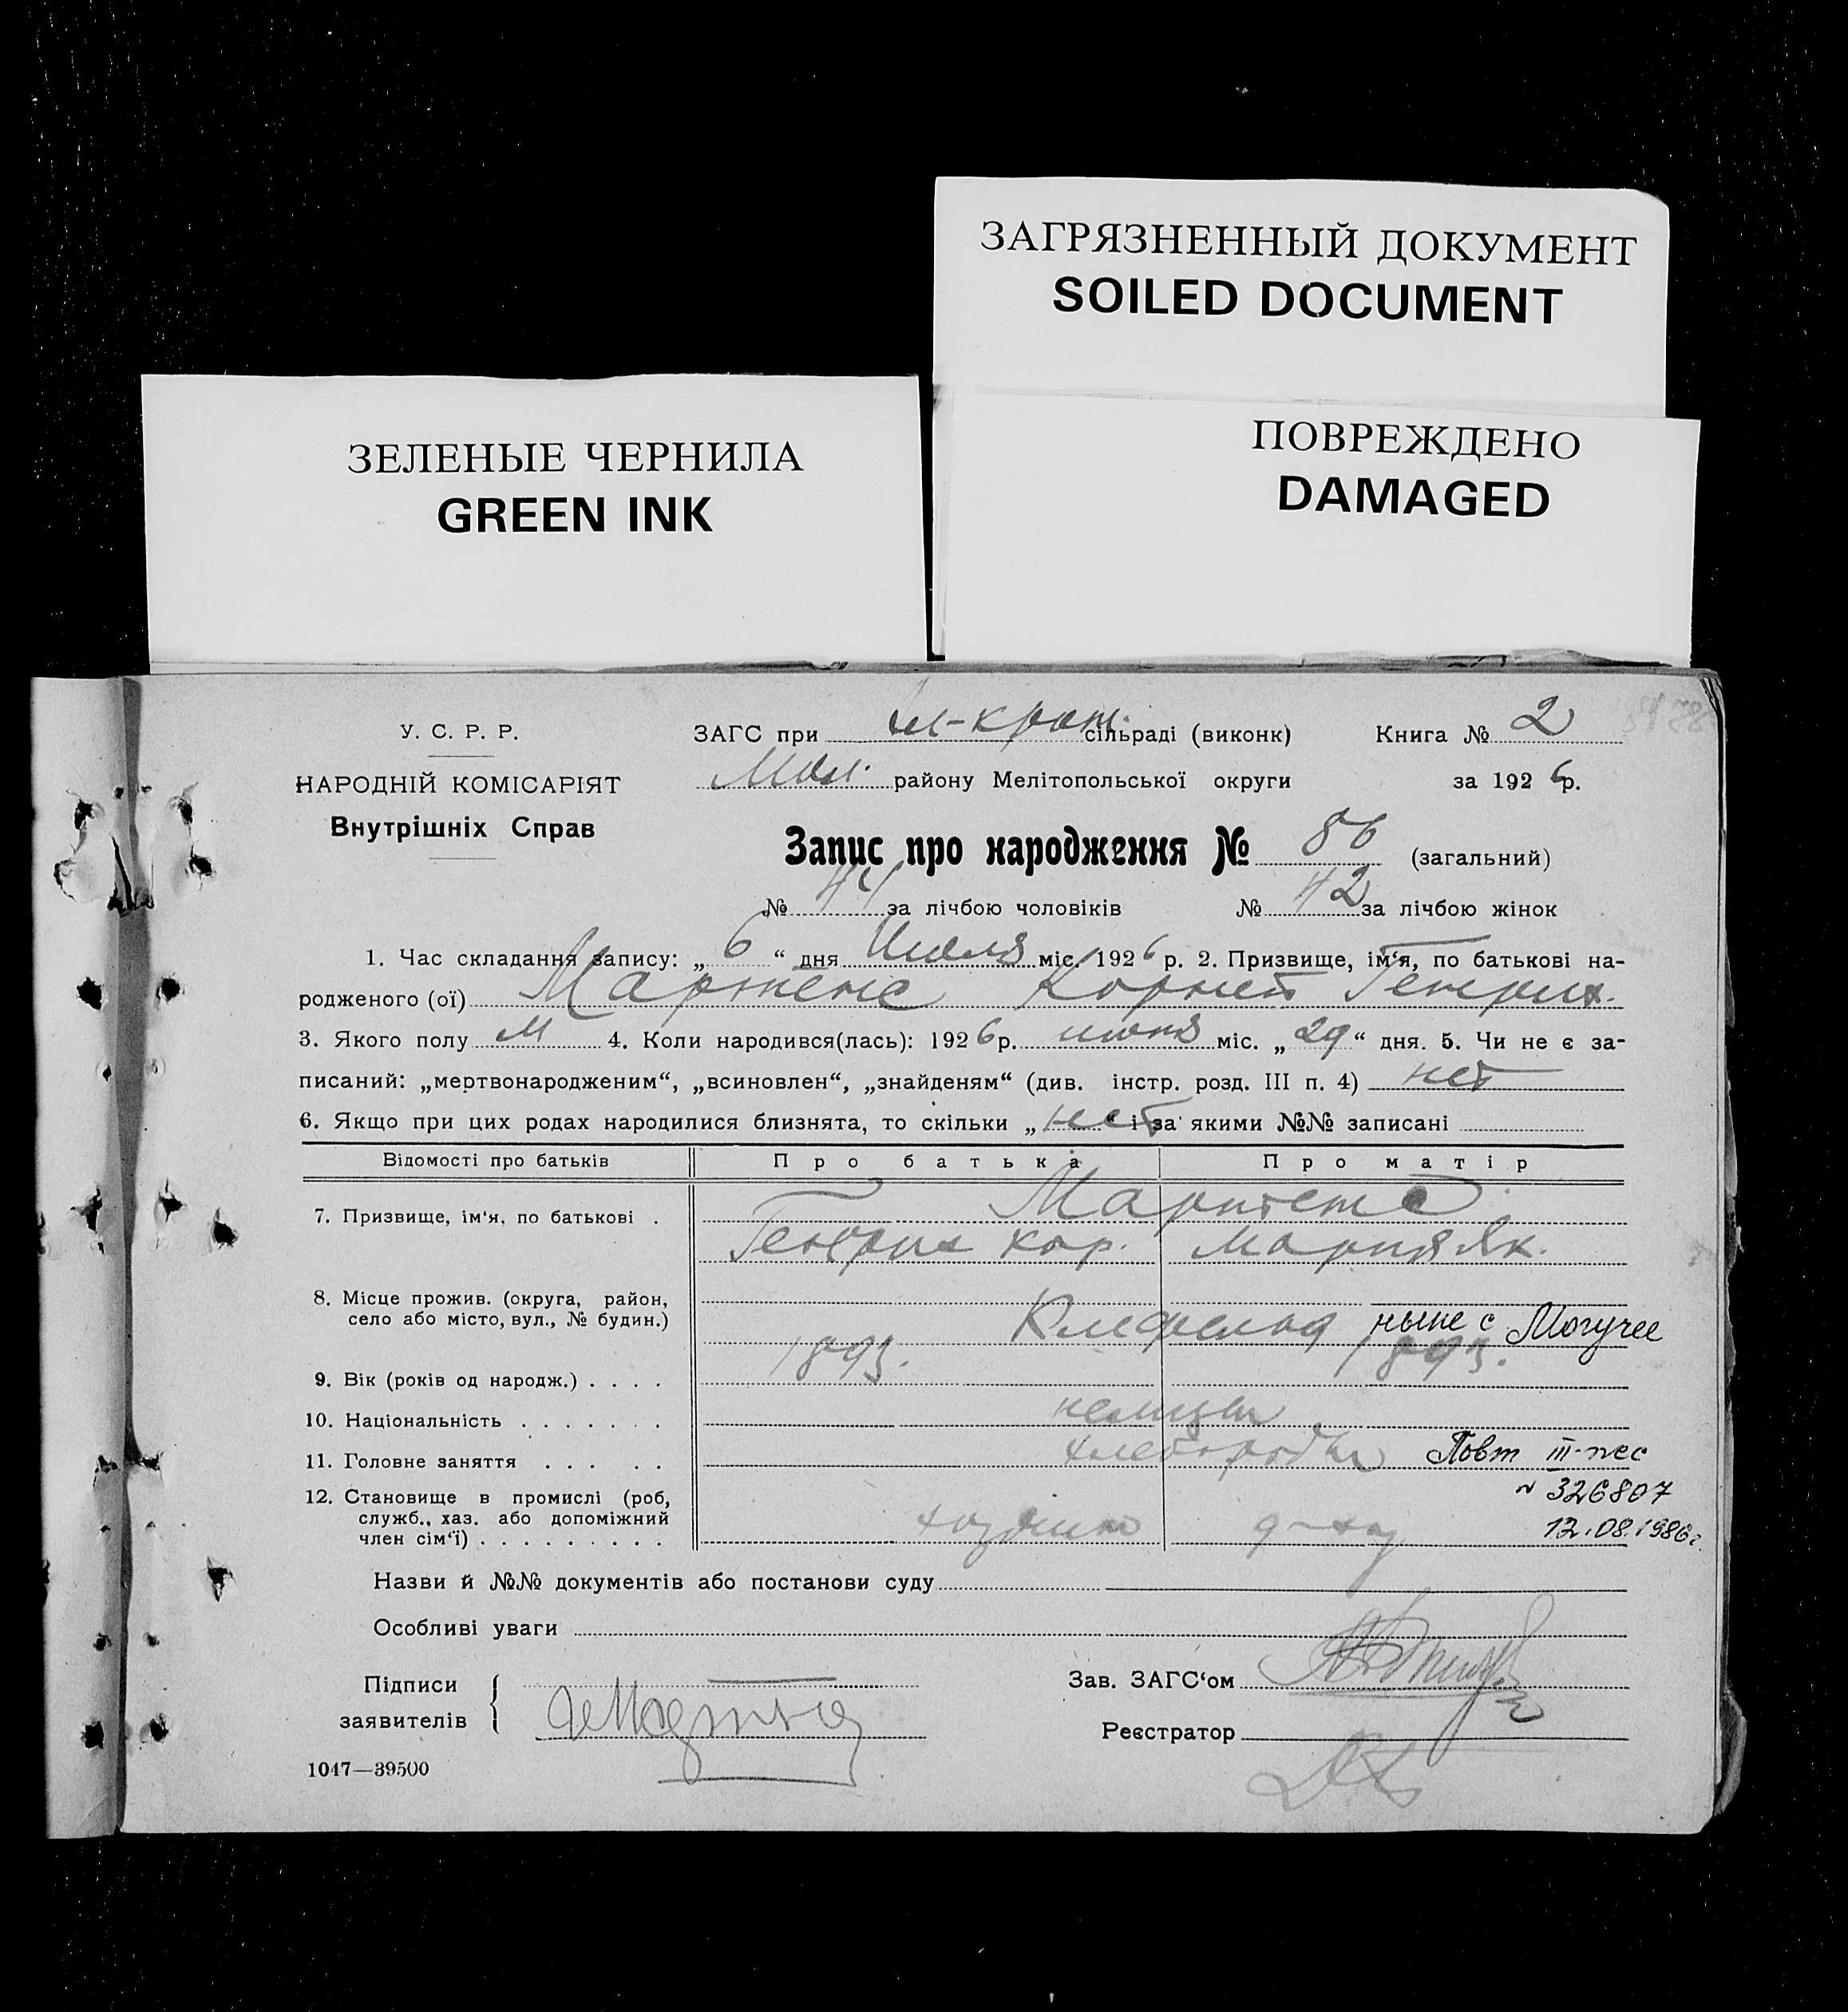 ЗАГРЯЗНЕННЫЙ ДОКУМЕНТ
SOILED DOCUMENT
ЗЕЛЕНЫЕ ЧЕРНИЛА
GREEN INK
ПОВРЕЖДЕНО
DAMAGED
У. С. Р. Р.
НАРОДНІЙ КОМІСАРІЯТ
Внутрішніх Справ
ЗАГС при сільраді (виконк) Книга № 2
Мол. району Мелітопольської округи за 1926 р.
Запис про народження № 86 (загальний)
№ 44 за лічбою чоловіків № 42 за лічбою жінок
1. Час складання запису: „ 6 “ дня Июля міс. 1926 р. 2. Призвище, ім‘я, по батькові на-
родженого (ої) Мартенс Корней Генрих.
3. Якого полу м 4. Коли народився(лась): 1926 р. июня міс. „ 29 “ дня. 5. Чи не є за-
писаний: „мертвонародженим“, „всиновлен“, „знайденям“ (див. інстр. розд. III п. 4) нет
6. Якщо при цих родах народилися близнята, то скільки „ нет “ і за якими №№ записані
Відомості про батьків Про батька Про матір
7. Призвище, ім‘я, по батькові . Мартенс
Генрих Кор. Мария Як.
8. Місце прожив. (округа, район,
село або місто, вул., № будин.) Клефельд ныне с Могучее
9. Вік (років од народж.) . . . . 1893. 1893.
10. Національність . . . . . . . немцы
11. Головне заняття . . . . . хлеборобы Повт III-пес
№ 326807
12. Становище в промислі (роб,
служб., хаз. або допоміжний
член сім‘ї) . . . . . . . . . хозяин д-хоз 12.08.1986г.
Назви й №№ документів або постанови суду
Особливі уваги
Підписи
заявителів
Зав. ЗАГС‘ом
Реєстратор
1047—39500